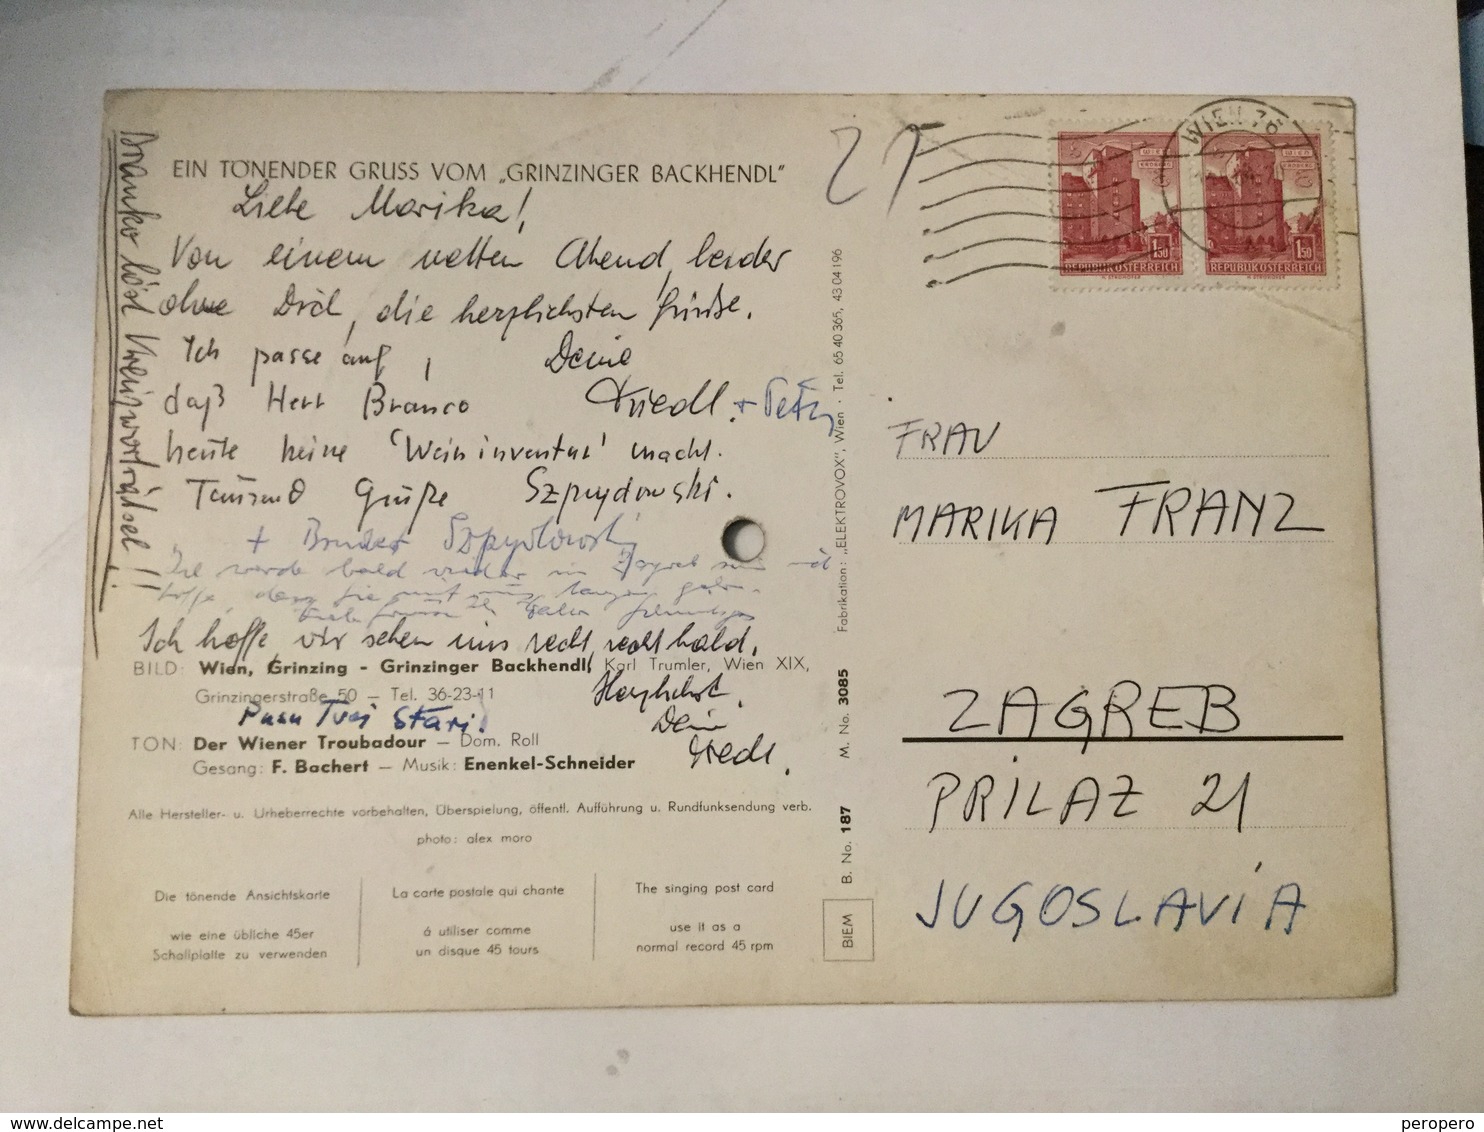 EIN TÖNENDER GRUSS VOM „GRINZINGER BACKHENDL"
Liebe Marika!
Von einem netten Abend, leider
ohne Dich, die herzlichsten Grüße.
Ich passe auf, Deine
daß Herr Branco Friedl. + Peter
heute keine 'Weininventur' macht.
Tausend Grüße Szpydowski.
+ Bruder Szpydowski
Ich werde bald wieder in Zagreb
hoffe, dass Sie mit uns
Ich hoffe, wir sehen uns recht, recht bald.
Herzlichst,
Dein
Friedl.
Pusa Tvoj Stari!
Branko löst Kreuzworträtsel!!
BILD: Wien, Grinzing - Grinzinger Backhendl, Karl Trumler, Wien XIX,
Grinzingerstraße 50 — Tel. 36-23-11
TON: Der Wiener Troubadour — Dom. Roll
Gesang: F. Bachert — Musik: Enenkel-Schneider
Alle Hersteller- u. Urheberrechte vorbehalten, Überspielung, öffentl. Aufführung u. Rundfunksendung verb.
photo: alex moro
Die tönende Ansichtskarte
wie eine übliche 45er
Schallplatte zu verwenden
La carte postale qui chante
á utiliser comme
un disque 45 tours
The singing post card
use it as a
normal record 45 rpm
B. No. 187 M. No. 3085 Fabrikation: „ELEKTROVOX", Wien · Tel. 65 40 365, 43 04 196
BIEM
WIEN
ERDBERG
1.50
REPUBLIK ÖSTERREICH
WIEN
ERDBERG
1.50
REPUBLIK ÖSTERREICH
WIEN 76
FRAU
MARIKA FRANZ
ZAGREB
PRILAZ 21
JUGOSLAVIA
peropero